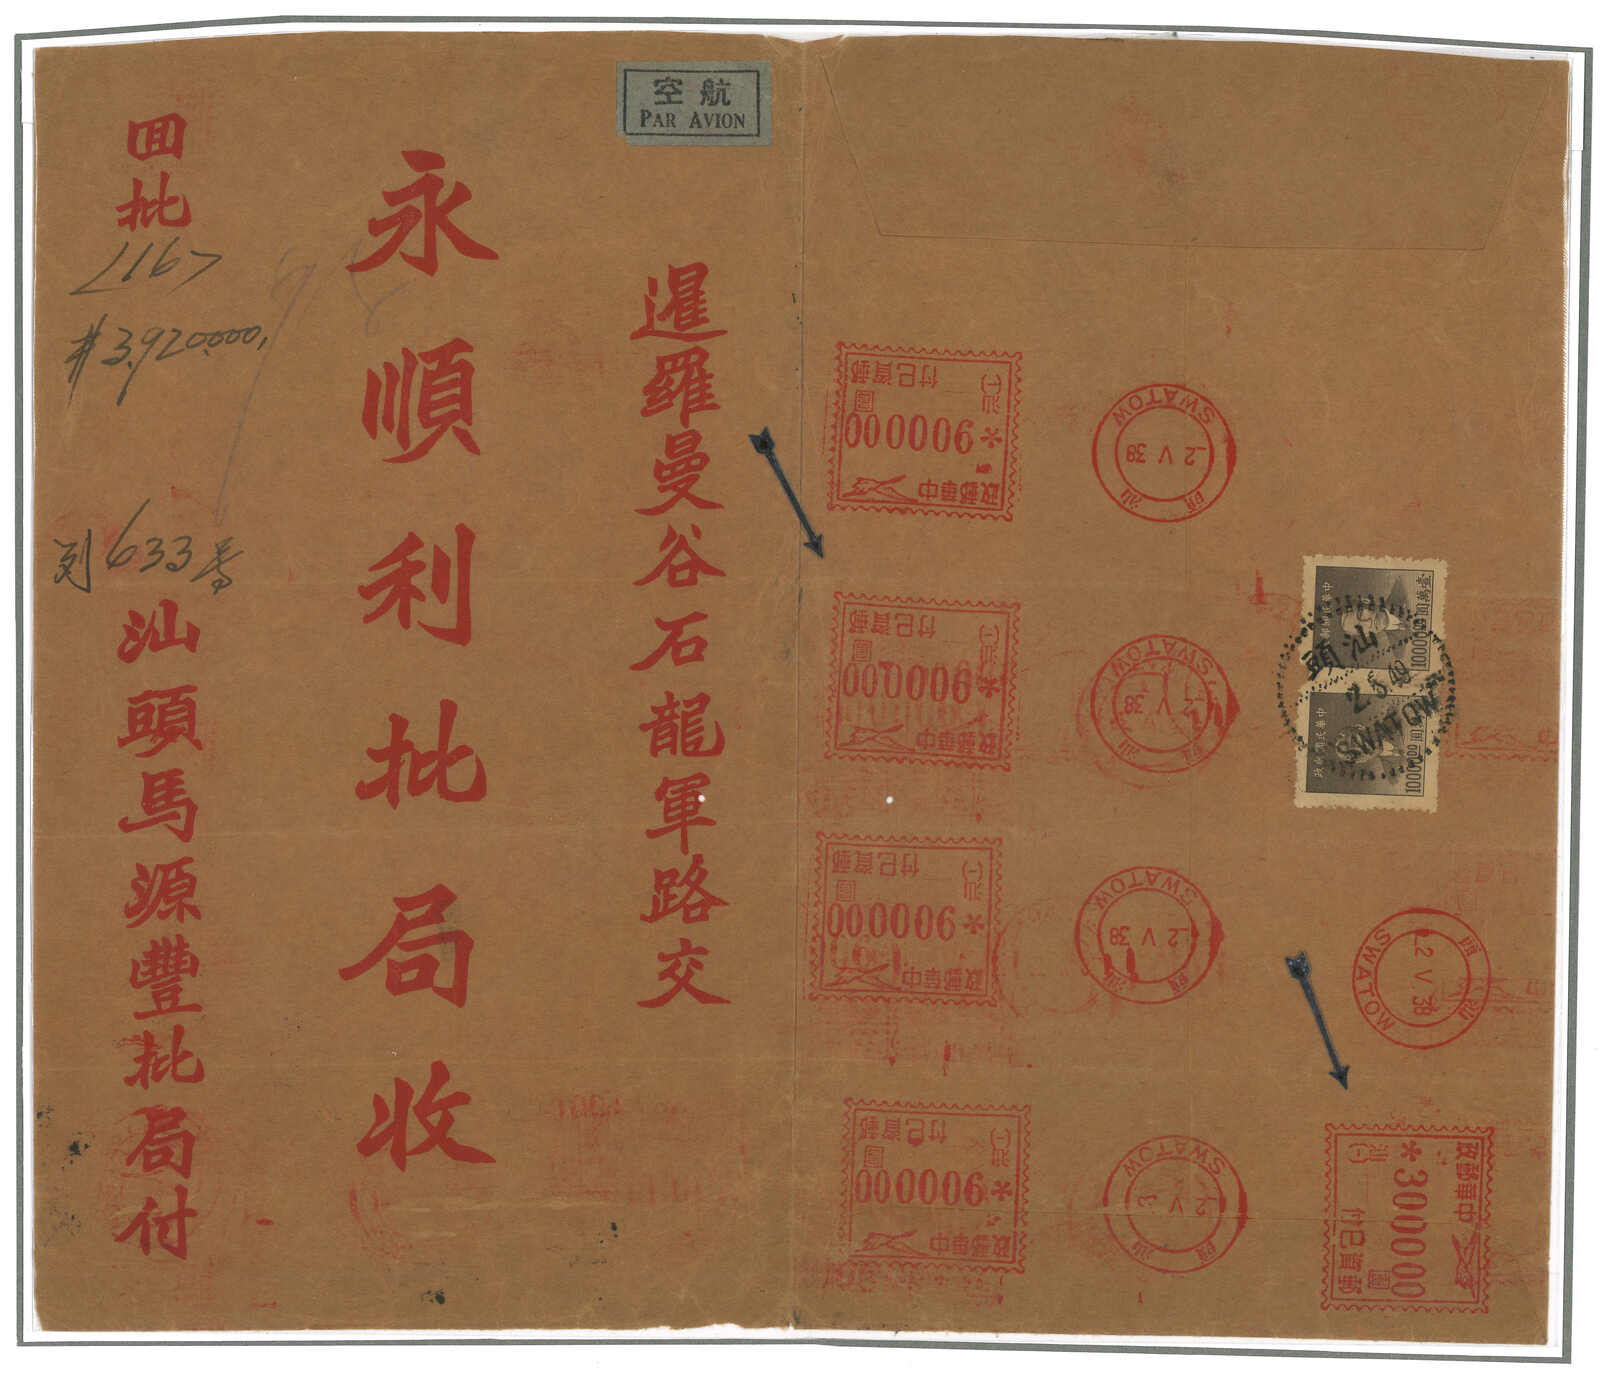 航空
PAR AVION
暹羅曼谷石龍軍路交
永順利批局收
回批
<116>
#3,920,000,
列633号
汕頭馬源豐批局付
中華郵政
*900000 00
圓
汕(一)
郵資已付
SWATOW
2 V 38
汕頭
中華郵政
*900000 00
圓
汕(一)
郵資已付
SWATOW
2 V 38
汕頭
中華郵政
*900000 00
圓
汕(一)
郵資已付
SWATOW
2 V 38
汕頭
中華郵政
*900000 00
圓
汕(一)
郵資已付
SWATOW
2 V
汕頭
中華民國郵政
壹萬圓
1000000
中華民國郵政
1000000
汕頭
2 5 49
SWATOW
汕頭
2 V 38
SWATOW
中華郵政
汕(一)
*300000 00
圓
郵資已付